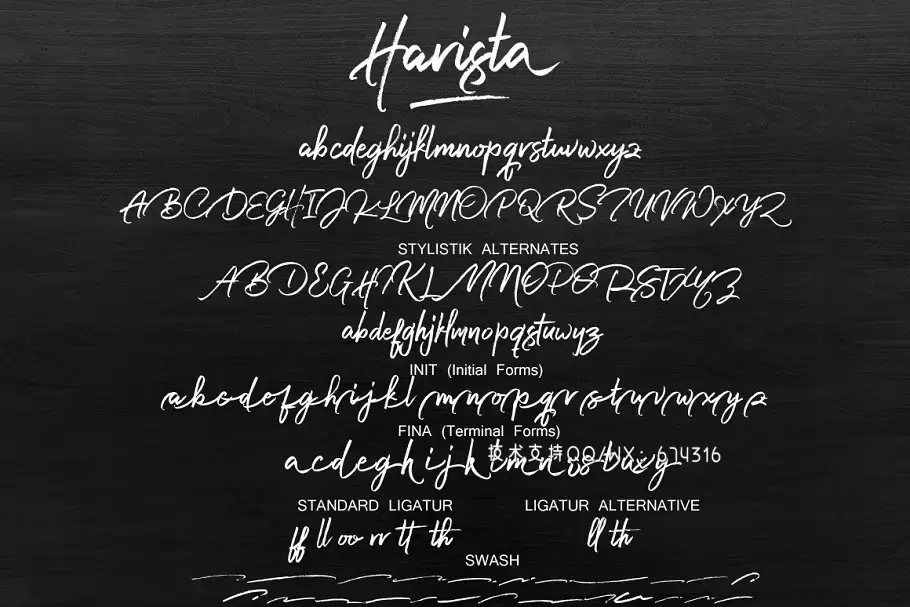 Harista
abcdeghijklmnopqrstuvwxyz
ABCDEGHIJKLMNOPQRSTUVWXYZ
STYLISTIK ALTERNATES
ABDEGHIKLMNOPQRSTXYZ
abdefghjklmnopqstuwyz
INIT (Initial Forms)
abcdefghijklmnopqrstuvwxyz
FINA (Terminal Forms)
技术支持QQ/WX: 674316
STANDARD LIGATUR LIGATUR ALTERNATIVE
ff ll oo rr tt th ll th
SWASH